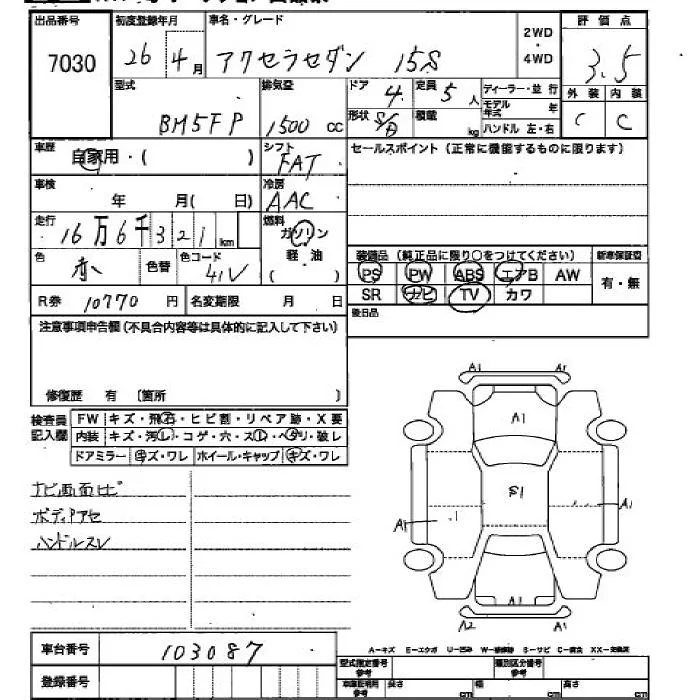 出品番号 7030
初度登録年月 26年4月
車名・グレード アクセラセダン 15S
2WD・4WD
評価点 3.5
外装 C 内装 C
型式 BM5FP
排気量 1500 cc
ドア 4 定員 5人
形状 S/D 積載 kg
ディーラー・並行
モデル年式 年
ハンドル 左・右
車歴 自家用・( )
シフト FAT
セールスポイント(正常に機能するものに限ります)
車検 年 月( 日)
冷房 AAC
走行 16万6千321km
燃料 ガソリン 軽油 ( )
色 赤 色替 色コード 41V
装備品(純正品に限り○をつけてください) 新車保証書
PS PW ABS エアB AW 有・無
SR ナビ TV カワ
R券 10770円 名変期限 月 日
後日品
注意事項申告欄(不具合内容等は具体的に記入して下さい)
修復歴 有 〔箇所 〕
検査員記入欄
FW キズ・飛石・ヒビ割・リペア跡・X要
内装 キズ・汚レ・コゲ・穴・スレ・ヘタリ・破レ
ドアミラー キズ・ワレ ホイール・キャップ キズ・ワレ
ナビ画面ヒビ
ボディアセ
ハンドルスレ
A1 A1
A1
S1
A1 A1
A1
A2 A1
車台番号 103087
登録番号
A-キズ E-エクボ U-凹ミ W-補修跡 S-サビ C-腐食 XX-交換済
型式指定番号参考 類別区分番号参考
車庫証明用参考 長さ cm 幅 cm 高さ cm